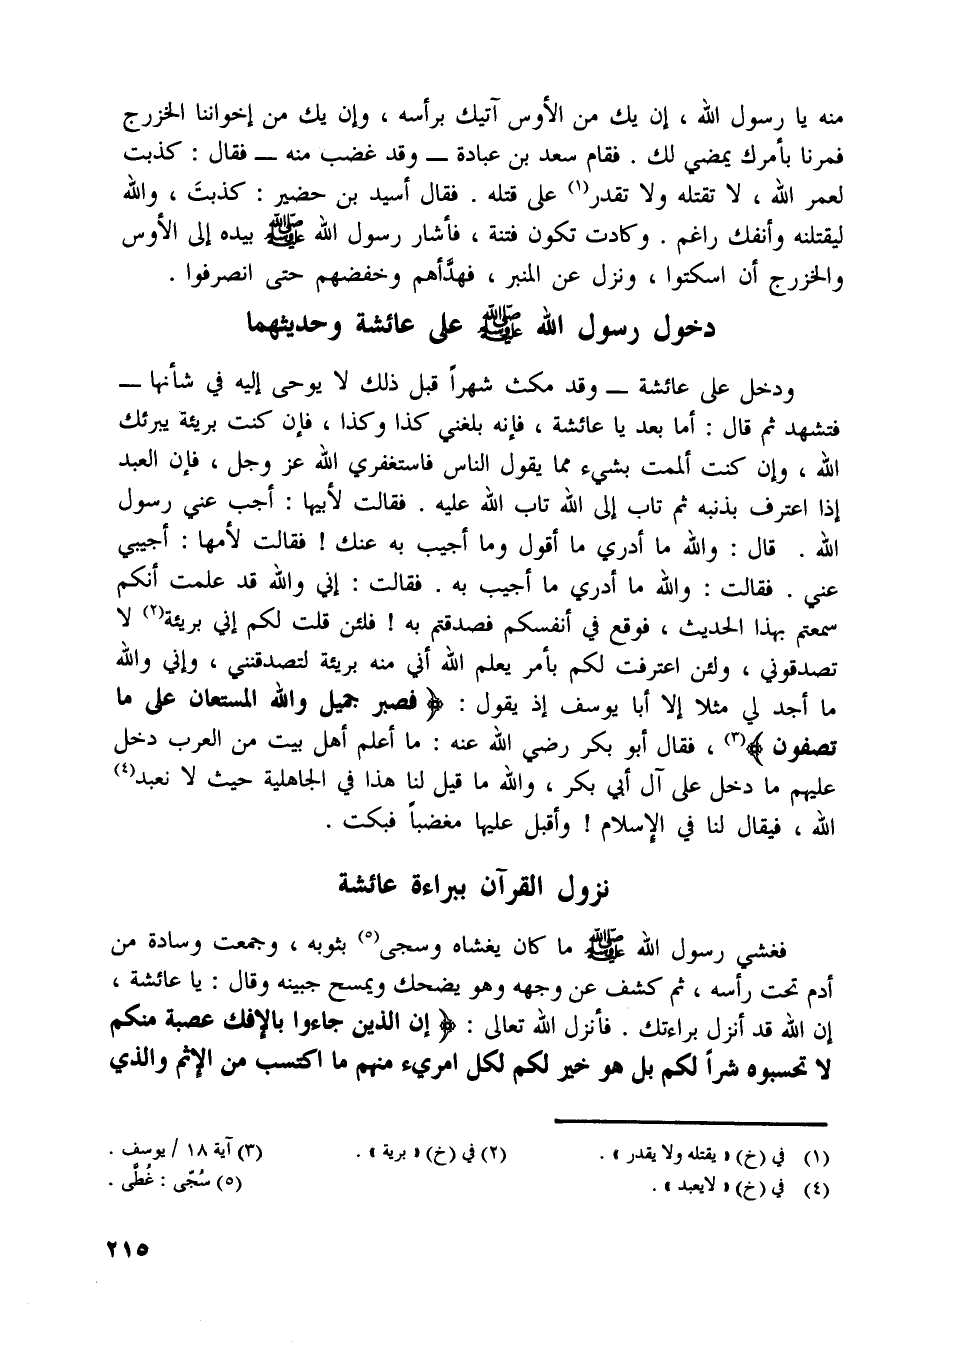 منه يا رسول الله ، إن يك من الأوس آتيك برأسه ، وإن يك من إخواننا الخزرج
فمرنا بأمرك يمضي لك . فقام سعد بن عبادة ـــ وقد غضب منه ـــ فقال : كذبت
لعمر الله ، لا تقتله ولا تقدر(١) على قتله . فقال أسيد بن حضير : كذبتَ ، والله
ليقتلنه وأنفك راغم . وكادت تكون فتنة ، فأشار رسول الله ﷺ بيده إلى الأوس
والخزرج أن اسكتوا ، ونزل عن المنبر ، فهدَّأهم وخفضهم حتى انصرفوا .
دخول رسول الله ﷺ على عائشة وحديثهما
ودخل على عائشة ـــ وقد مكث شهراً قبل ذلك لا يوحى إليه في شأنها ـــ
فتشهد ثم قال : أما بعد يا عائشة ، فإنه بلغني كذا وكذا ، فإن كنت بريئة يبرئك
الله ، وإن كنت ألممت بشيء مما يقول الناس فاستغفري الله عز وجل ، فإن العبد
إذا اعترف بذنبه ثم تاب إلى الله تاب الله عليه . فقالت لأبيها : أجب عني رسول
الله . قال : والله ما أدري ما أقول وما أجيب به عنك ! فقالت لأمها : أجيبي
عني . فقالت : والله ما أدري ما أجيب به . فقالت : إني والله قد علمت أنكم
سمعتم بهذا الحديث ، فوقع في أنفسكم فصدقتم به ! فلئن قلت لكم إني بريئة(٢) لا
تصدقوني ، ولئن اعترفت لكم بأمر يعلم الله أني منه بريئة لتصدقنني ، وإني والله
ما أجد لي مثلا إلا أبا يوسف إذ يقول : ﴿ فصبر جميل والله المستعان على ما
تصفون ﴾(٣) ، فقال أبو بكر رضي الله عنه : ما أعلم أهل بيت من العرب دخل
عليهم ما دخل على آل أبي بكر ، والله ما قيل لنا هذا في الجاهلية حيث لا نعبد(٤)
الله ، فيقال لنا في الإسلام ! وأقبل عليها مغضباً فبكت .
نزول القرآن ببراءة عائشة
فغشي رسول الله ﷺ ما كان يغشاه وسجى(٥) بثوبه ، وجمعت وسادة من
أدم تحت رأسه ، ثم كشف عن وجهه وهو يضحك ويمسح جبينه وقال : يا عائشة ،
إن الله قد أنزل براءتك . فأنزل الله تعالى : ﴿ إن الذين جاءوا بالإفك عصبة منكم
لا تحسبوه شراً لكم بل هو خير لكم لكل امريء منهم ما اكتسب من الإثم والذي
(١) في (خ) « يقتله ولا يقدر » . (٢) في (خ) « برية » . (٣) آية ١٨ / يوسف .
(٤) في (خ) « لايعبد » . (٥) سُجّى : غُطَّى .
٢١٥